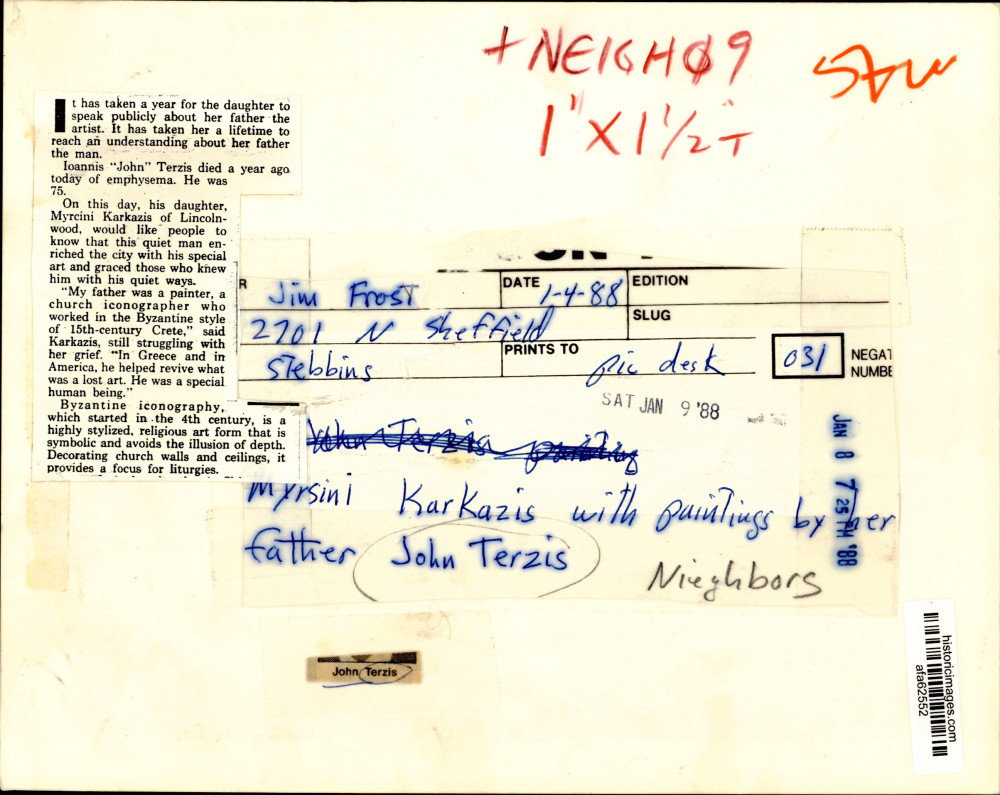 + NEIGH09
1" X 1 1/2 T
It has taken a year for the daughter to
speak publicly about her father the
artist. It has taken her a lifetime to
reach an understanding about her father
the man.
Ioannis "John" Terzis died a year ago
today of emphysema. He was
75.
On this day, his daughter,
Myrcini Karkazis of Lincoln-
wood, would like people to
know that this quiet man en-
riched the city with his special
art and graced those who knew
him with his quiet ways.
"My father was a painter, a
church iconographer who
worked in the Byzantine style
of 15th-century Crete," said
Karkazis, still struggling with
her grief. "In Greece and in
America, he helped revive what
was a lost art. He was a special
human being."
Byzantine iconography,
which started in the 4th century, is a
highly stylized, religious art form that is
symbolic and avoids the illusion of depth.
Decorating church walls and ceilings, it
provides a focus for liturgies.
R Jim Frost DATE 1-4-88 EDITION
2701 N Sheffield SLUG
Stebbins PRINTS TO pic desk 031 NEGAT
NUMBE
SAT JAN 9 '88
JAN 8 7 25 PM '88
John Terzis painting
Myrsini Karkazis with paintings by her
father John Terzis
Nieghbors
John Terzis
historicimages.com
afa62552